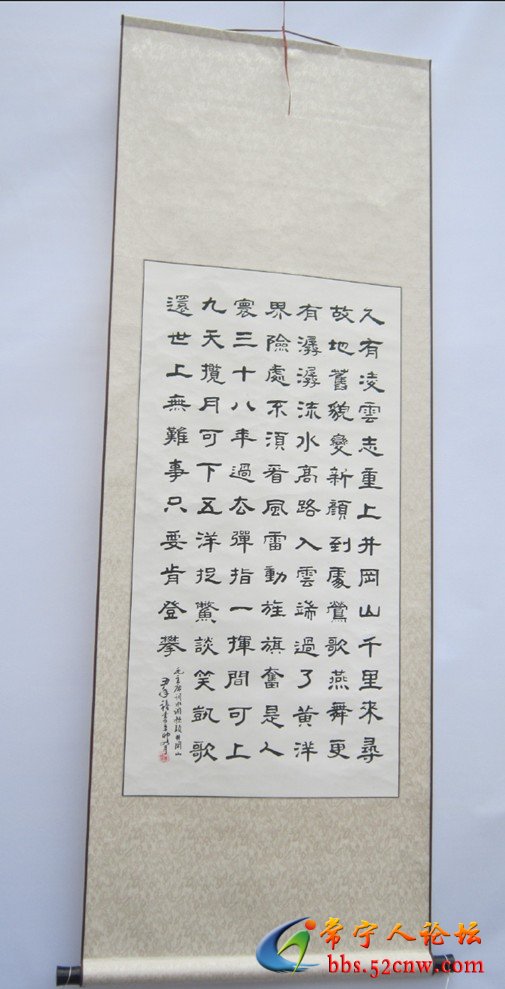 久有凌雲志重上井岡山千里來尋
故地舊貌變新顔到處鶯歌燕舞更
有潺潺流水高路入雲端過了黄洋
界險處不須看風雷動旌旗奮是人
寰三十八年過去彈指一揮間可上
九天攬月可下五洋捉鱉談笑凱歌
還世上無難事只要肯登攀
毛主席詞水調歌頭井岡山
常宁人论坛
bbs.52cnw.com